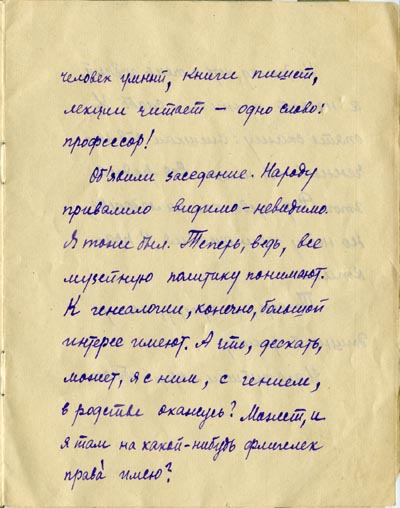 человек умный, книги пишет,
лекции читает – одно слово:
профессор!
Об'явили заседание. Народу
привалило видимо-невидимо.
Я тоже был. Теперь, ведь, все
музейную политику понимают.
К генеалогии, конечно, большой
интерес имеют. А что, дескать,
может, я с ним, с гением,
в родстве окажусь? Может, и
я там на какой-нибудь флигелек
права́ имею?